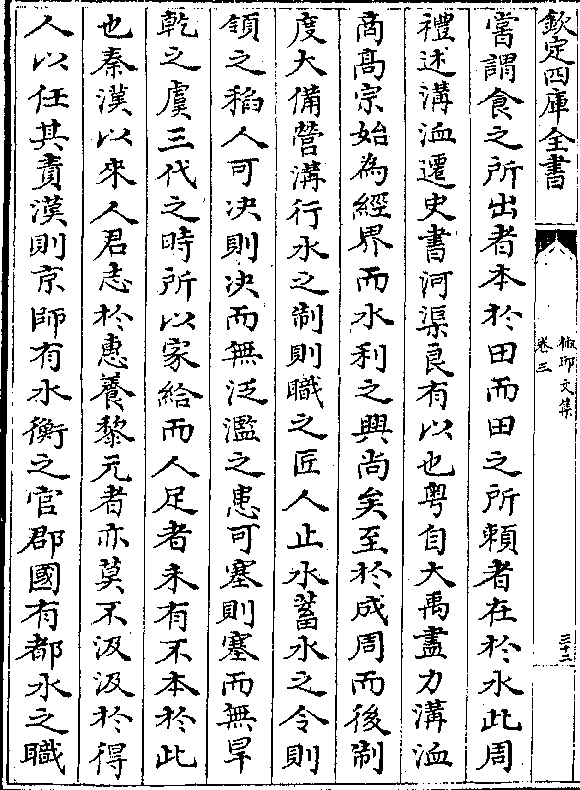 欽定四庫全書
卷三
三十二
嘗謂食之所出者本於田而田之所頼者在於水此周
禮述溝洫遷史書河渠良有以也粤自大禹盡力溝洫
商髙宗始為經界而水利之興尚矣至於成周而後制
度大備營溝行水之制則職之匠人止水蓄水之令則
領之稻人可决則决而無泛濫之患可塞則塞而無旱
乾之虞三代之時所以家給而人足者未有不本於此
也秦漢以來人君志於惠養黎元者亦莫不汲汲於得
人以任其責漢則京師有水衡之官郡國有都水之職